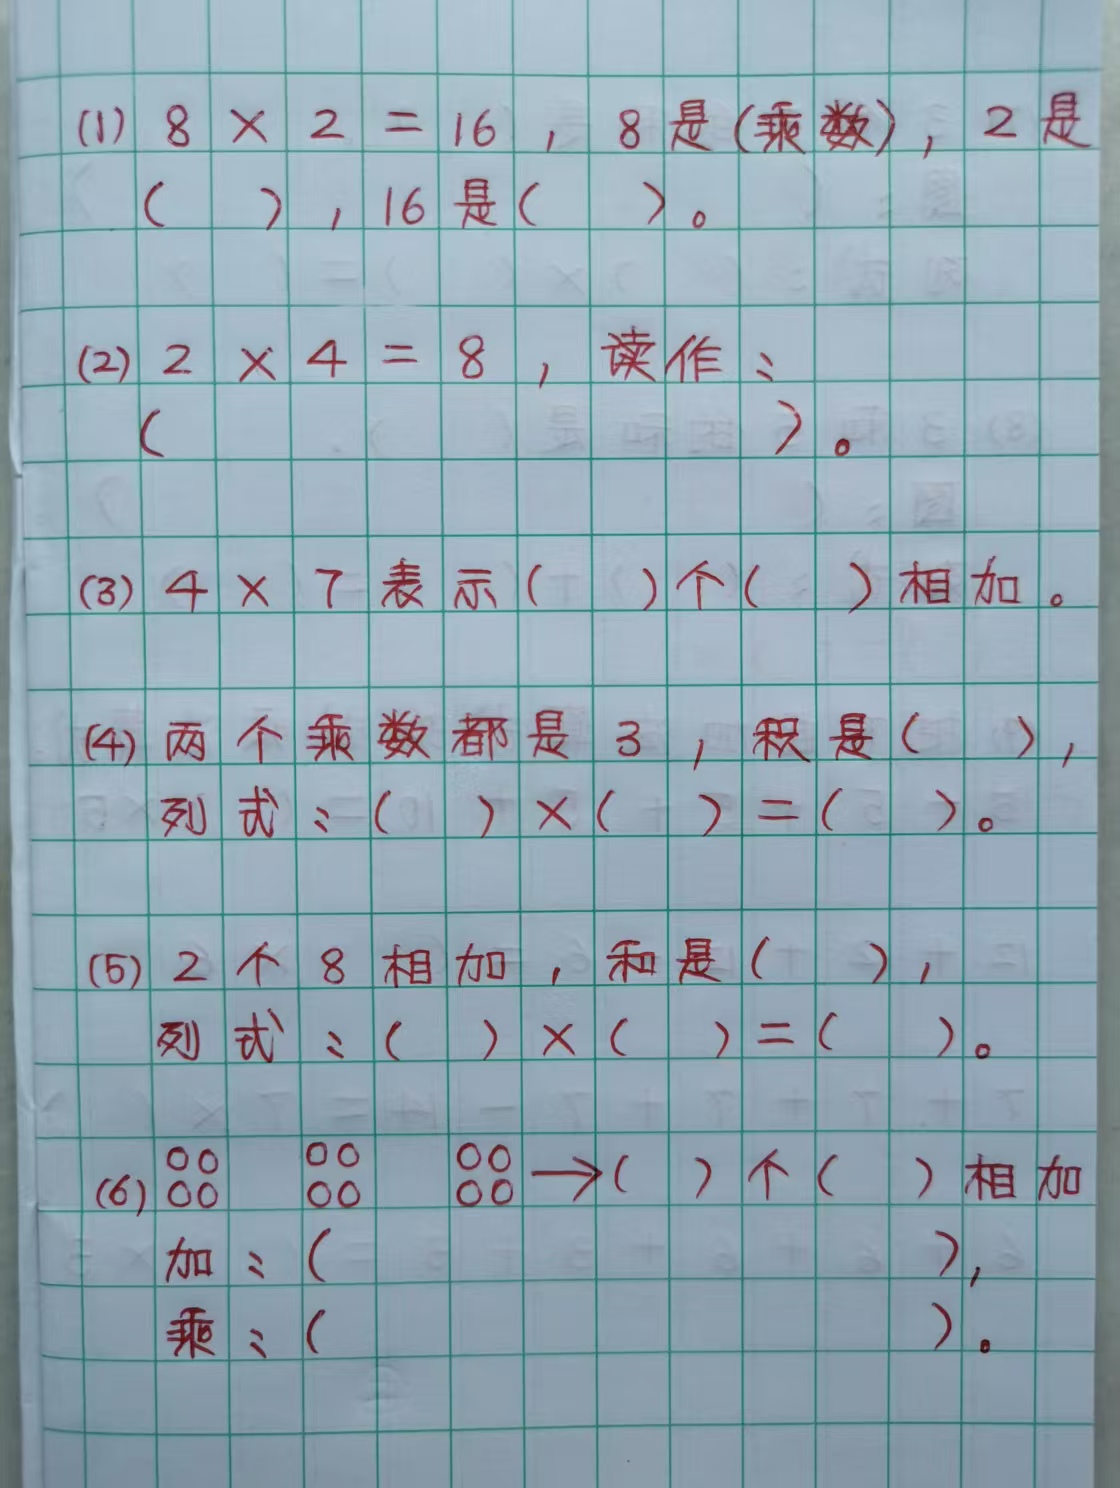 (1) 8 × 2 = 16 , 8是(乘数), 2是
(  ), 16是(  )。
(2) 2 × 4 = 8 , 读作:
(  )。
(3) 4 × 7 表示(  )个(  )相加。
(4) 两个乘数都是3, 积是(  ),
列式:(  )×(  )=(  )。
(5) 2个8相加, 和是(  ),
列式:(  )×(  )=(  )。
(6) →(  )个(  )相加
加:(  ),
乘:(  )。